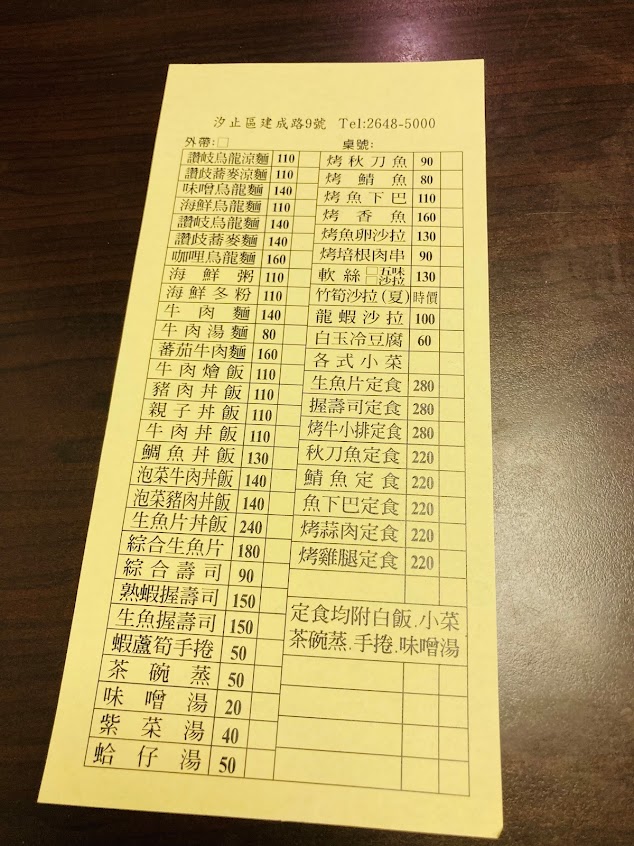 汐止區建成路9號 Tel:2648-5000
外帶:□ 桌號:
讚岐烏龍涼麵 110
讚歧蕎麥涼麵 110
味噌烏龍麵 140
海鮮烏龍麵 110
讚岐烏龍麵 140
讚歧蕎麥麵 140
咖哩烏龍麵 160
海鮮粥 110
海鮮冬粉 110
牛肉麵 140
牛肉湯麵 80
蕃茄牛肉麵 160
牛肉燴飯 110
豬肉丼飯 110
親子丼飯 110
牛肉丼飯 110
鯛魚丼飯 130
泡菜牛肉丼飯 140
泡菜豬肉丼飯 140
生魚片丼飯 240
綜合生魚片 180
綜合壽司 90
熟蝦握壽司 150
生魚握壽司 150
蝦蘆筍手捲 50
茶碗蒸 50
味噌湯 20
紫菜湯 40
蛤仔湯 50
烤秋刀魚 90
烤鯖魚 80
烤魚下巴 110
烤香魚 160
烤魚卵沙拉 130
烤培根肉串 90
軟絲 □五味 □沙拉 130
竹筍沙拉(夏) 時價
龍蝦沙拉 100
白玉冷豆腐 60
各式小菜
生魚片定食 280
握壽司定食 280
烤牛小排定食 280
秋刀魚定食 220
鯖魚定食 220
魚下巴定食 220
烤蒜肉定食 220
烤雞腿定食 220
定食均附白飯.小菜
茶碗蒸.手捲.味噌湯